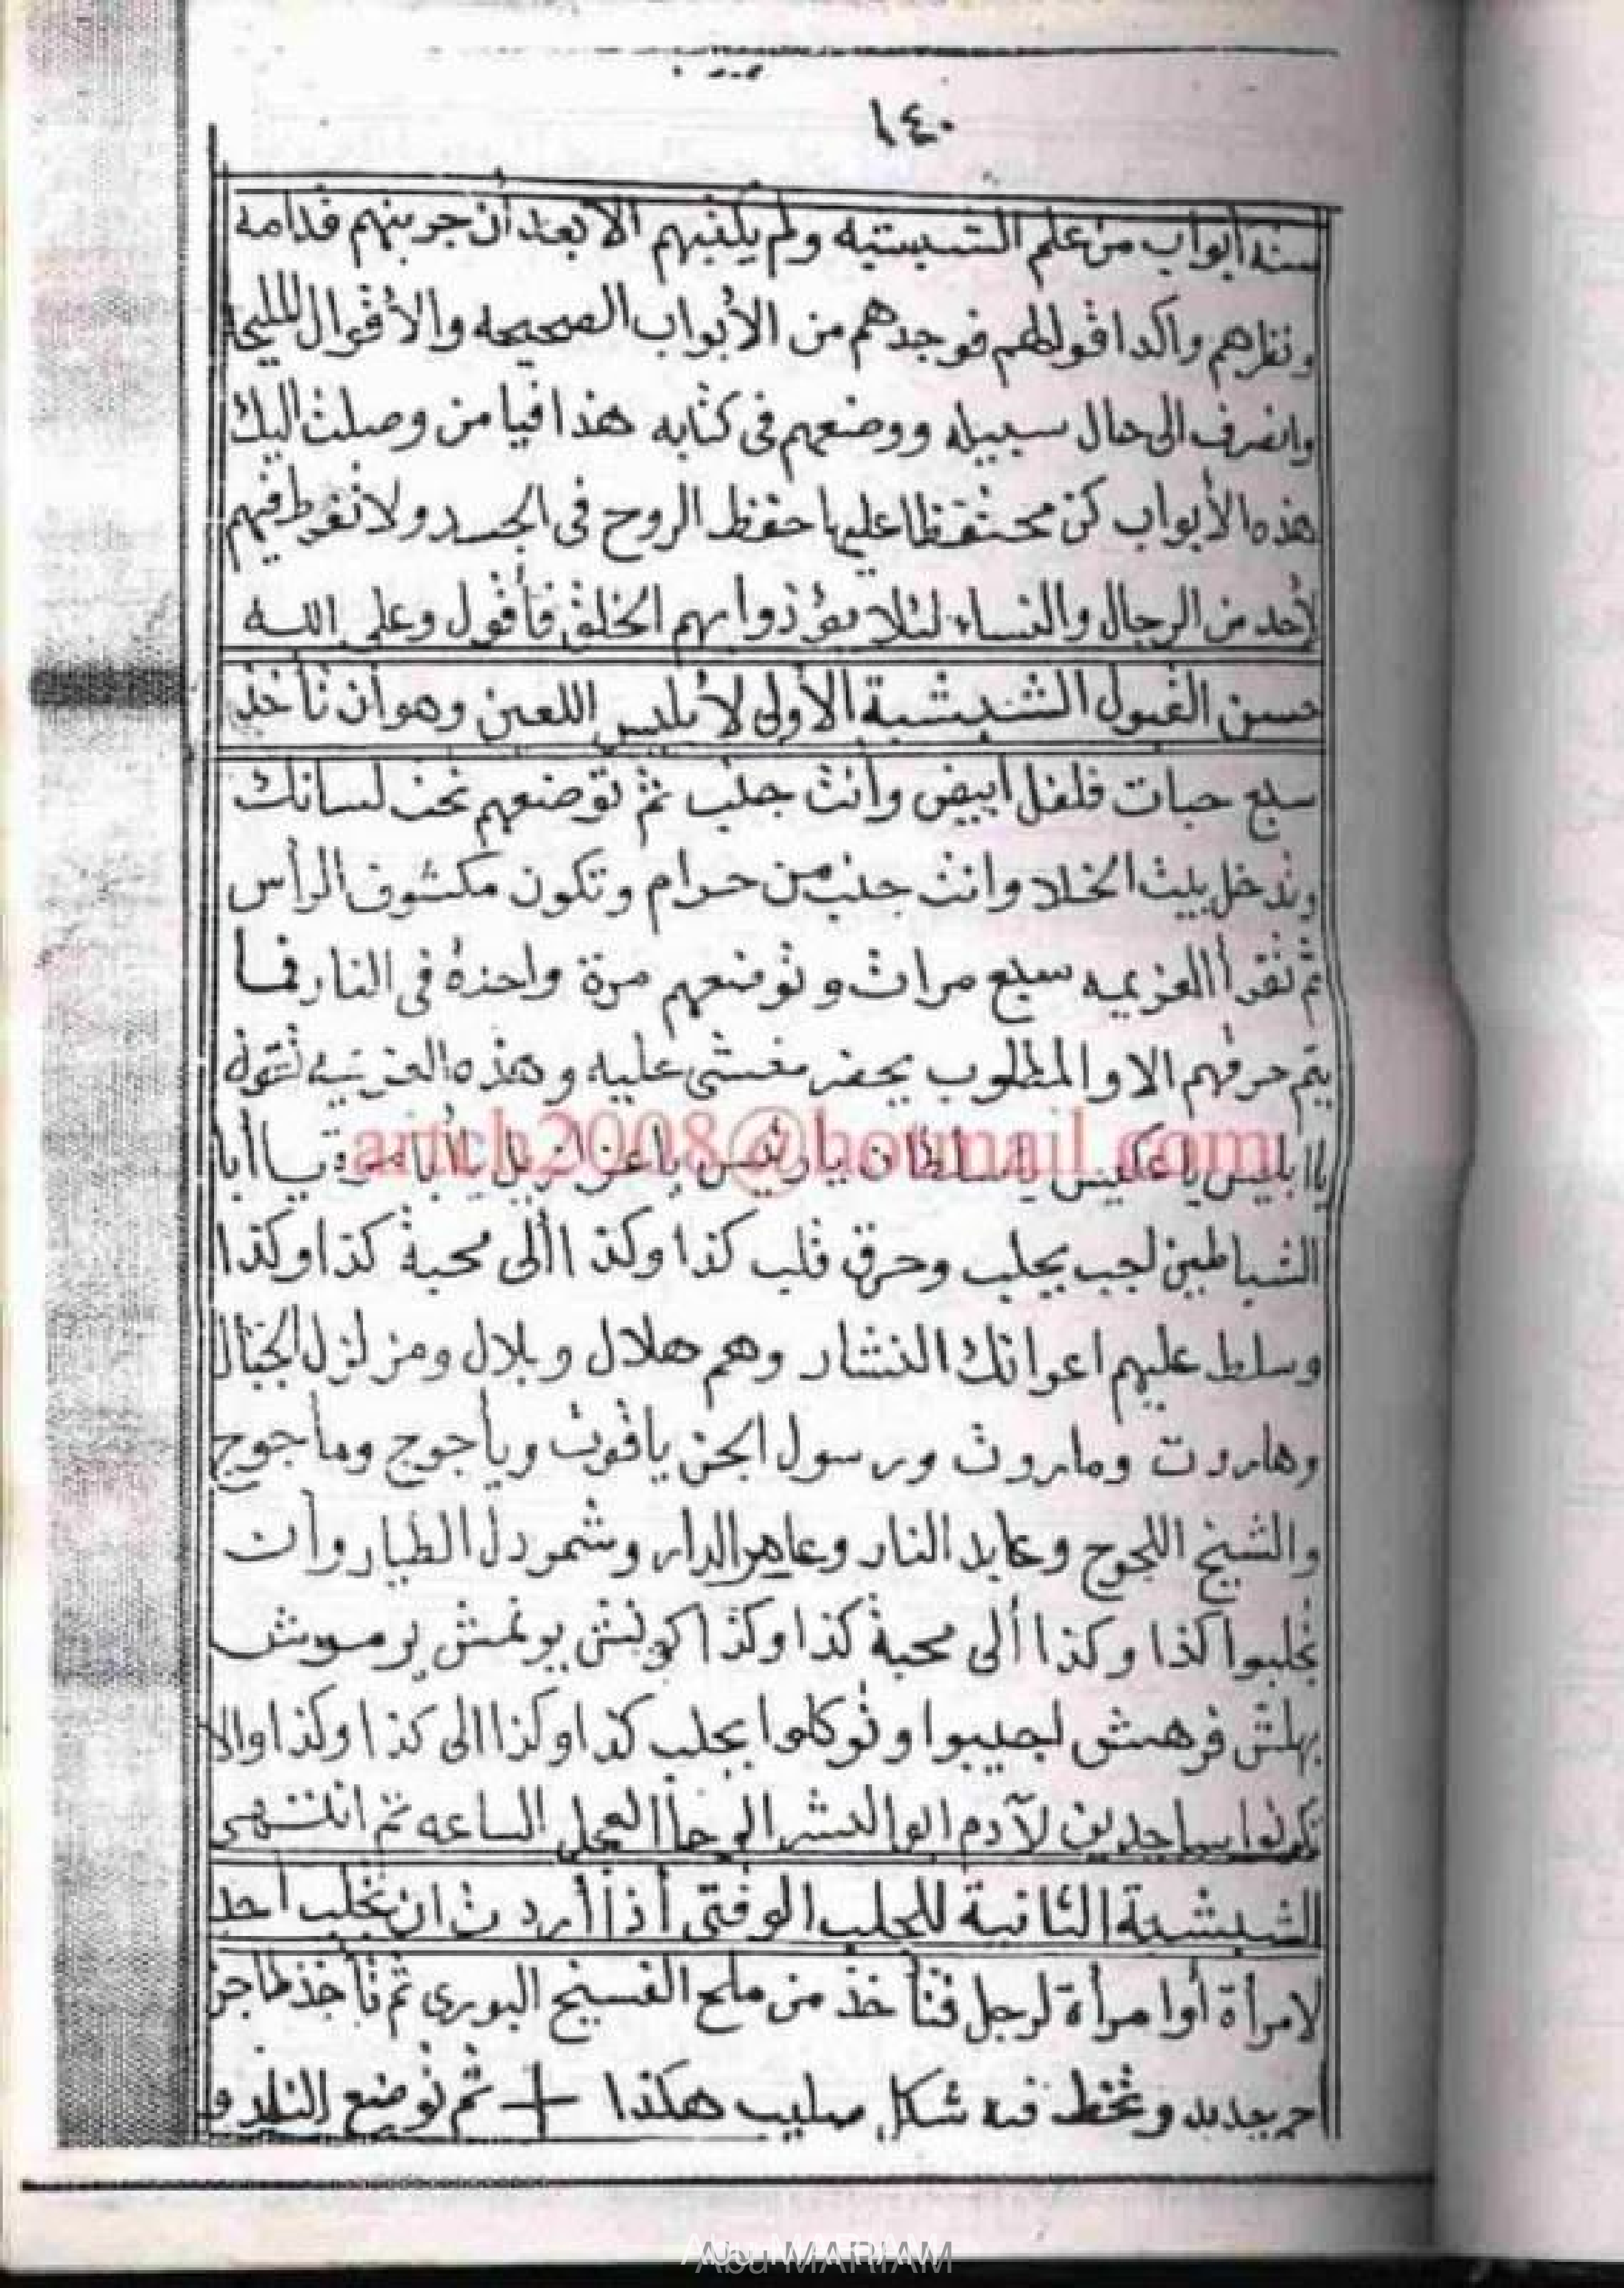 ١٤٠
ستة أبواب من علم الشبشبه ولم يكتبهم الا بعد أن جربهم قدامه
ونظرهم وأكد اقوالهم فوجدهم من الأبواب الصحيحه والأقوال المليحة
وانصرف الى حال سبيله ووضعهم فى كتابه هذا فيا من وصلت اليك
هذه الأبواب كن محتفظا عليها حفظ الروح فى الجسد ولا تفرط فيهم
لأحد من الرجال والنساء لئلا يؤذوا بهم الخلق فأقول وعلى الله
حسن القبول الشبشبة الأولى لأبليس اللعين وهو أن تأخذ
سبع حبات فلفل أبيض وأنت جنب ثم توضعهم تحت لسانك
وتدخل بيت الخلا وانت جنب من حرام وتكون مكشوف الرأس
ثم تقرأ العزيمه سبع مرات وتوضعهم مرة واحدة فى النار فما
يتم حرقهم الا والمطلوب يحضر مغشى عليه وهذه العزيمه تقول
يا ابليس يا عكيس يا سلطان يا رئيس يا عزازيل يا أبا مرة يا أبا
الشياطين لجب بجلب وحرق قلب كذا وكذا ألى محبة كذا وكذا
وسلط عليهم اعوانك وهم هلال وبلال ومزلزل الجبال
وهاروت وماروت ورسول الجن ياقوت ويأجوج ومأجوج
والشيخ اللجوج وعابد النار وعاهر الدار وشمردل الطيار وأن
تجلبوا كذا وكذا ألى محبة كذا وكذا
لجيبوا وتوكلوا بجلب كذا وكذا الى كذا وكذا والا
تكونوا ساجدين لآدم ابو البشر الوحا العجل الساعه تم انتهى
الشبشبة الثانية للجلب الوقتى أذا أردت ان تجلب احد
لامرأة أو امرأة لرجل فتأخذ من ملح ثم تأخذ طاجن
جديد وتخط فيه شكل صليب هكذا + ثم توضع النار و
artch2008@hotmail.com
Abu MARIAM